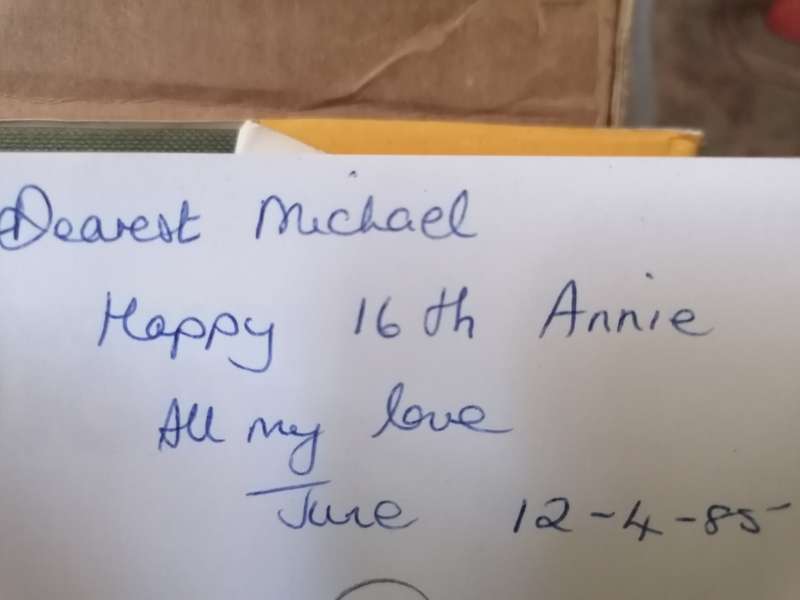 Dearest Michael
Happy 16th Annie
All my love
June 12-4-85